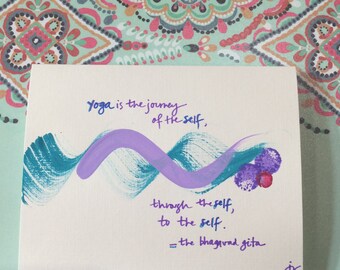 yoga is the journey
of the self,
through the self,
to the self.
= the bhagavad gita